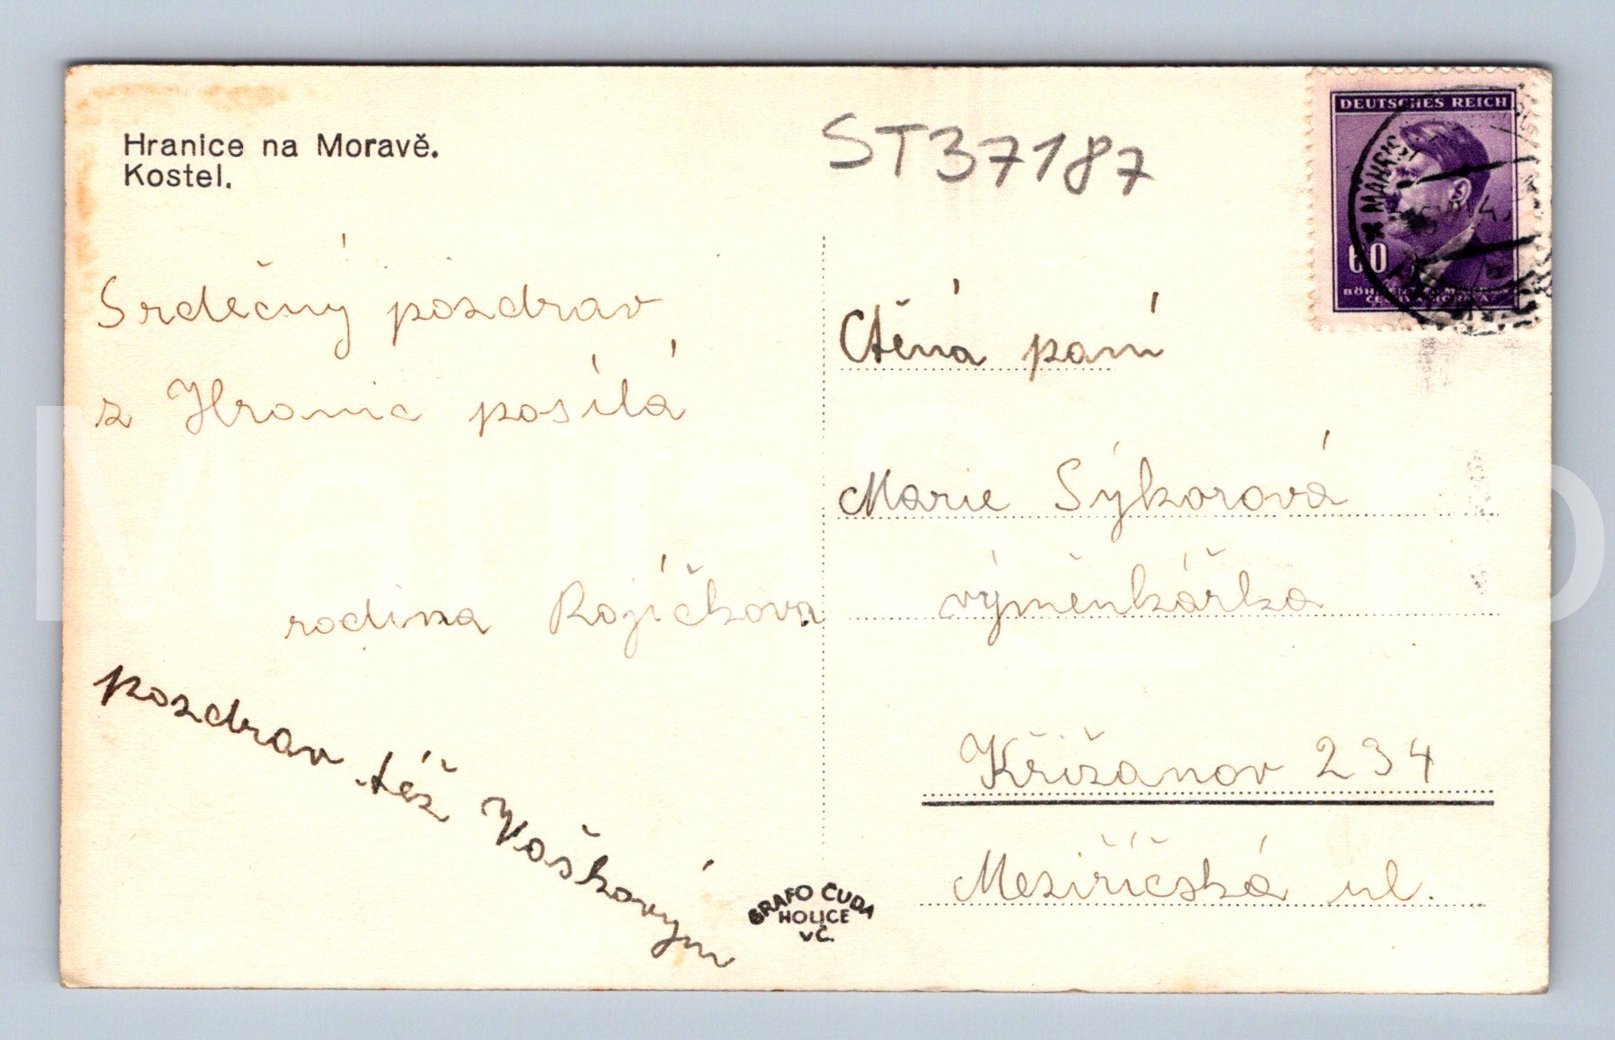 Hranice na Moravě.
Kostel.
ST37187
DEUTSCHES REICH
60
Srděčný pozdrav
z Hranic posílá
rodina Rojíčkova
pozdrav též Voškovým
Ctěná paní
Marie Sýkorová
výměnkářka
Křižanov 234
Meziříčská ul.
GRAFO ČUDA
HOLICE
vČ.